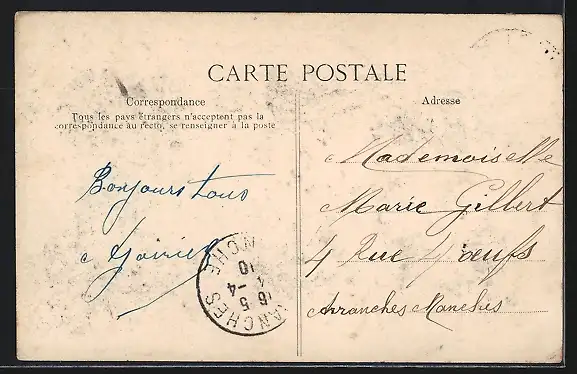 CARTE POSTALE
Correspondance
Tous les pays étrangers n'acceptent pas la
correspondance au recto, se renseigner à la poste
Bonjours tous
Adresse
Mademoiselle
Marie Gillert
4 Rue d'œufs
Avranches Manches
ANCHES
NCHE
16
5 -4
10